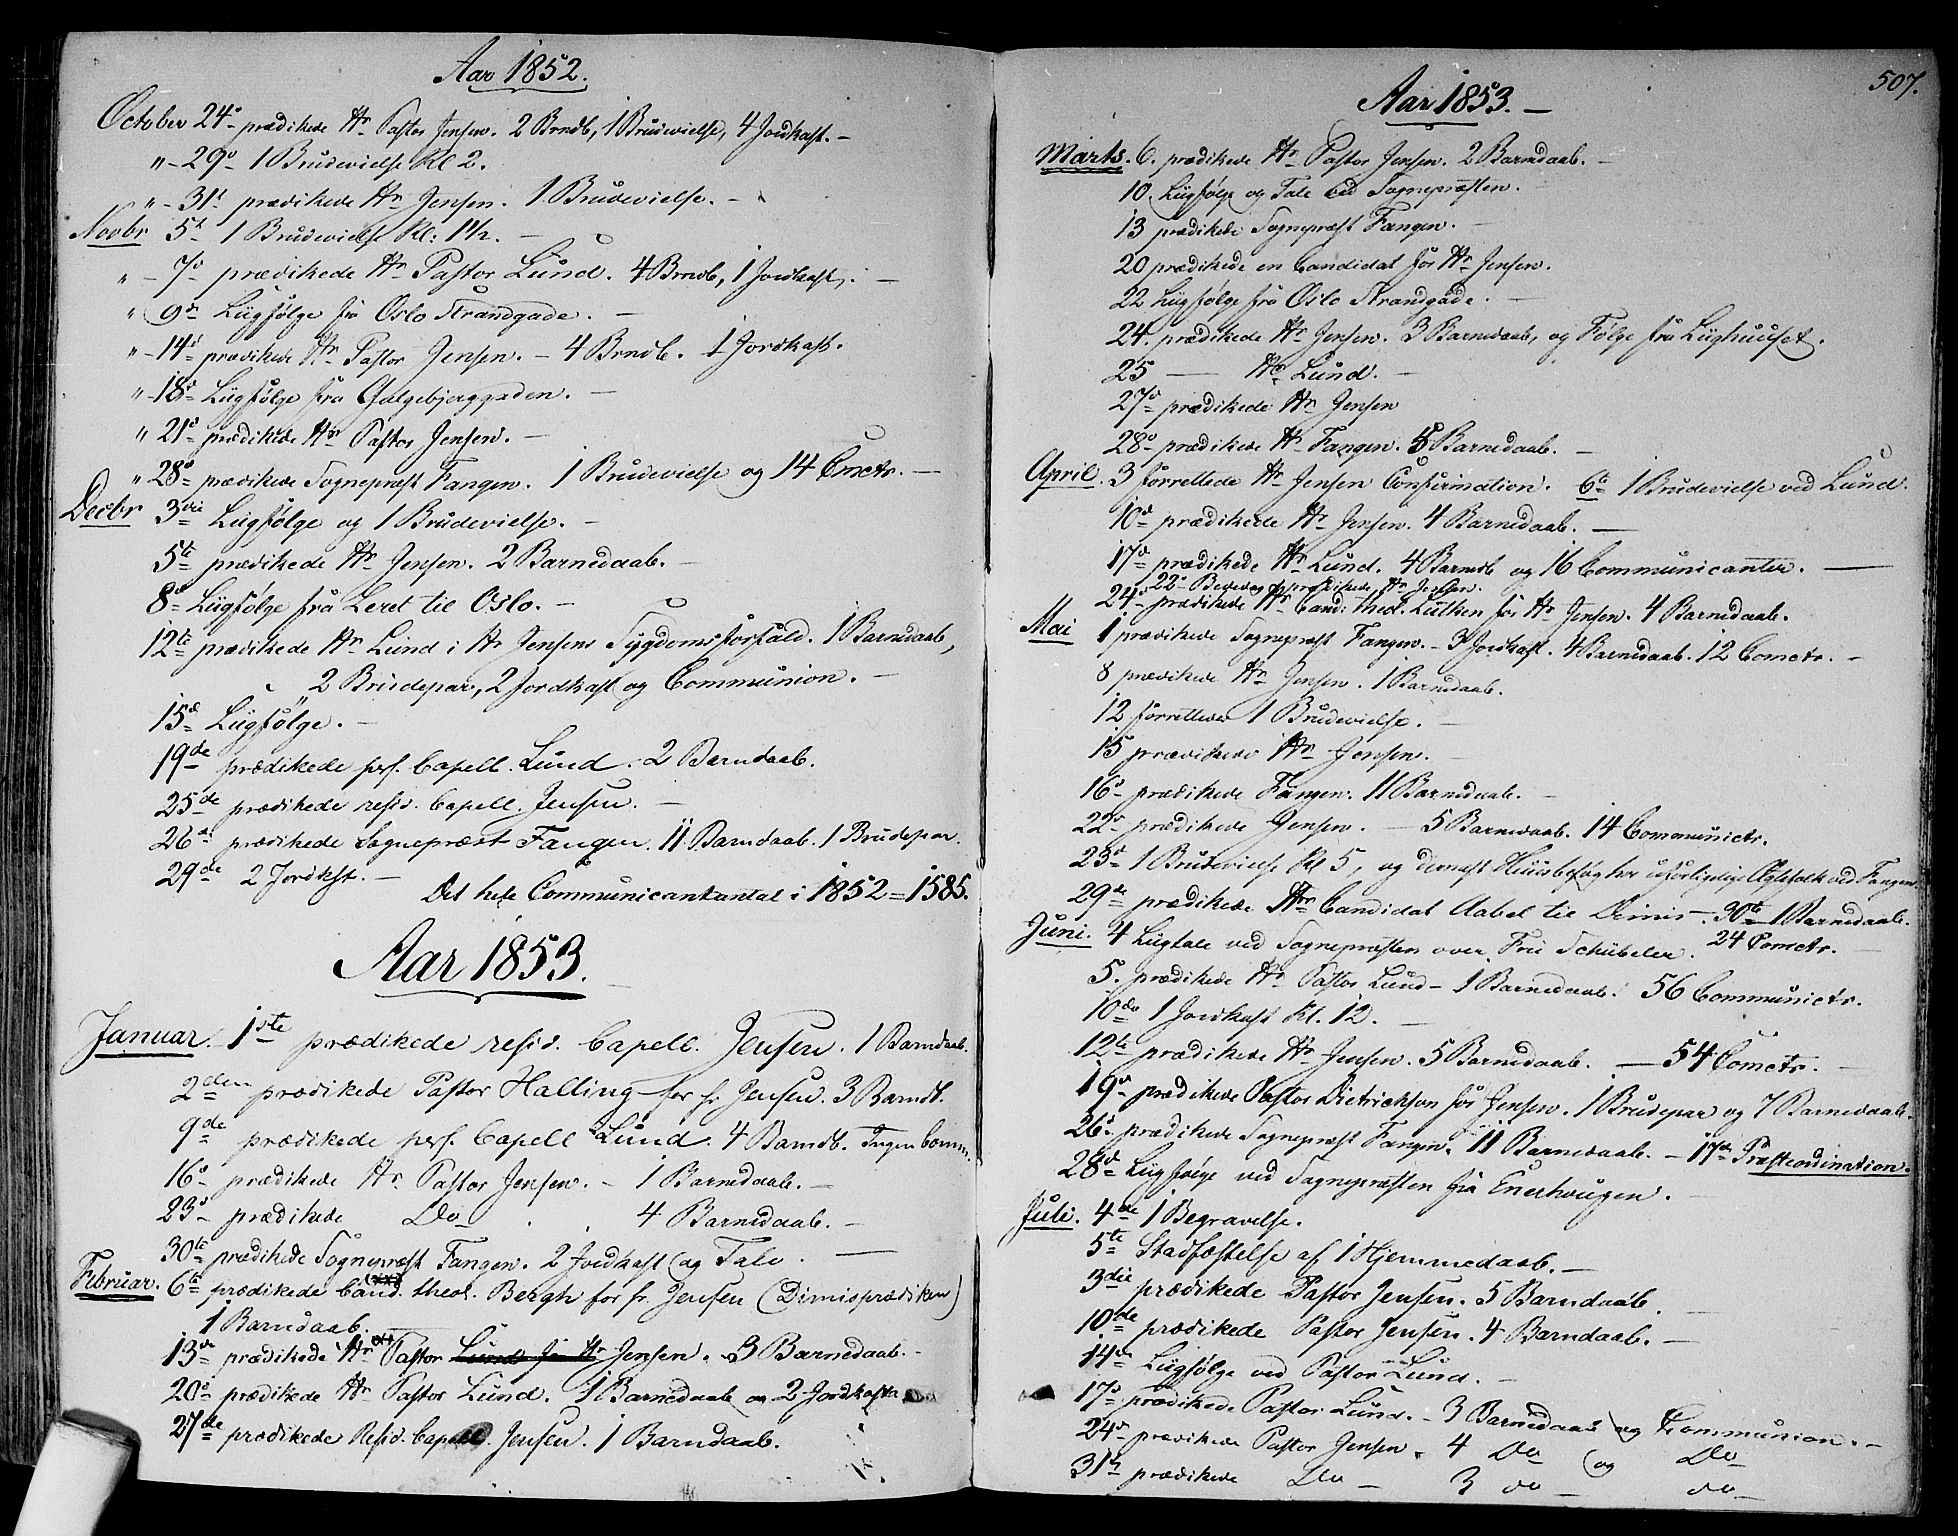 Aar 1852.
October 24de prædikede Hr Pastor Jensen. 2 Brndb, 1 Brudevielse, 4 Jordkast. –
" – 29de 1 Brudevielse Kl 2.
" – 31t prædikede Hr Jensen. 1 Brudevielse. –
Novbr 5te 1 Brudevielse Kl: 1½. –
" – 7de prædikede Hr Pastor Lund. 4 Brndb, 1 Jordkast. –
" 9de Liigfølge fra Oslo Strandgade. –
" – 14de prædikede Hr Pastor Jensen. – 4 Brndb. 1 Jordkast.
" – 18de Liigfølge fra Galgebjerggaden. –
" 21de prædikede Hr Pastor Jensen. –
" 28de prædikede Sognepræst Fangen. 1 Brudevielse og 14 Cmctr. –
Decbr 3die Liigfølge og 1 Brudevielse. –
5te prædikede Hr Jensen. 2 Barnedaab. –
8de Liigfølge fra Leret til Oslo. –
12te prædikede Hr Lund i Hr Jensens Sygdomsforfald. 1 Barnedaab,
2 Brudepar, 2 Jordkast og Communion. –
15de Liigfølge. –
19de prædikede pers. Capell. Lund. 2 Barndaab.
25de prædikede resid. Capell. Jensen. –
26de prædikede Sognepræst Fangen. 11 Barndaab. 1 Brudepar.
29de 2 Jordkst. – Det hele Communicantantal i 1852 = 1585.
Aar 1853.
Januar. 1ste prædikede resid. Capell. Jensen. 1 Barndaab.
2den prædikede Pastor Halling for hr Jensen. 3 Barndb.
9de prædikede pers. Capell Lund. 4 Barndb. Ingen Comm.
16de prædikede Hr Pastor Jensen. – 1 Barnedaab. –
23de prædikede Do 4 Barnedaab. –
30te prædikede Sognepræst Fangen. 2 Jordkast og Tale. –
Februar. 6te prædikede Cand. theol. Bergh for hr Jensen (Dimisprædiken)
1 Barndaab.
13de prædikede Hr Pastor Lund for Hr Jensen. 3 Barnedaab. –
20de prædikede Hr Pastor Lund. 1 Barnedaab og 2 Jordkast
27de prædikede Resid. Capell. Jensen. 1 Barndaab.
507.
Aar 1853. –
Marts. 6. prædikede Hr Pastor Jensen. 2 Barndaab. –
10. Liigfølge og Tale ved Sognepræsten. –
13 prædikede Sognepræst Fangen. –
20 prædikede en Candidat for Hr Jensen.
22 Liigfølge fra Oslo Strandgade. –
24. prædikede Hr Jensen. 3 Barnedaab, og Følge fra Liighuuset.
25 — Hr Lund. –
27de prædikede Hr Jensen
28de prædikede Hr Fangen. 5 Barnedaab. –
April. 3 forrettede Hr Jensen Confirmation. 6te 1 Brudevielse ved Lund.
10de prædikede Hr Jensen. 4 Barnedaab. –
17de prædikede Hr Lund. 4 Barnedb og 16 Communicanter. –
22de Bededag prædikede Hr Jensen.
24de prædikede Hr Cand: theol. Lütken for Hr Jensen. 4 Barnedaab.
Mai 1 prædikede Sognepræst Fangen. – 3 Jordkast. 4 Barnedaab. 12 Comctr. –
8 prædikede Hr Jensen. 1 Barnedaab.
12 forrettedes 1 Brudevielse. –
15 prædikede Hr Jensen.
16de prædikede Fangen. 11 Barnedaab. –
22de prædikede Jensen. – 5 Barnedaab. 14 Communictr.
23de 1 Brudevielse Kl 5, og dernæst Huusbesøg hos uforligelige Ægtefolk ved Fangen.
29de prædikede Hr Candidat Aabel til Dimis –. 30te 1 Barnedaab.
24 Comctr.
Juni. 4 Liigtale ved Sognepræsten over Fru Schübeler.
5. prædikede Hr Pastor Lund – 1 Barnedaab. 56 Communictr.
10de 1 Jordkast Kl. 12. –
12te prædikede Hr Jensen. 5 Barnedaab. — 54 Comctr. –
19de prædikede Pastor Dietrichson for Jensen. 1 Brudepar og 7 Barnedaab.
26de prædikede Sognepræst Fangen. 11 Barnedaab. – 17de Præsteordination.
28de Liigfølge ved Sognepræsten fra Enerhougen. –
Juli. 4de 1 Begravelse.
5te Stadfæstelse af 1 Hjemmedaab. –
3die prædikede Pastor Jensen. 5 Barndaab.
10de prædikede Pastor Jensen. 4 Barndaab. –
14de Liigfølge ved Pastor Lund. –
17de prædikede Pastor Lund. – 3 Barnedaab og Communion. –
24de prædikede Pastor Jensen. 4 Do og Do
31te prædikede Do – 3 do – do –